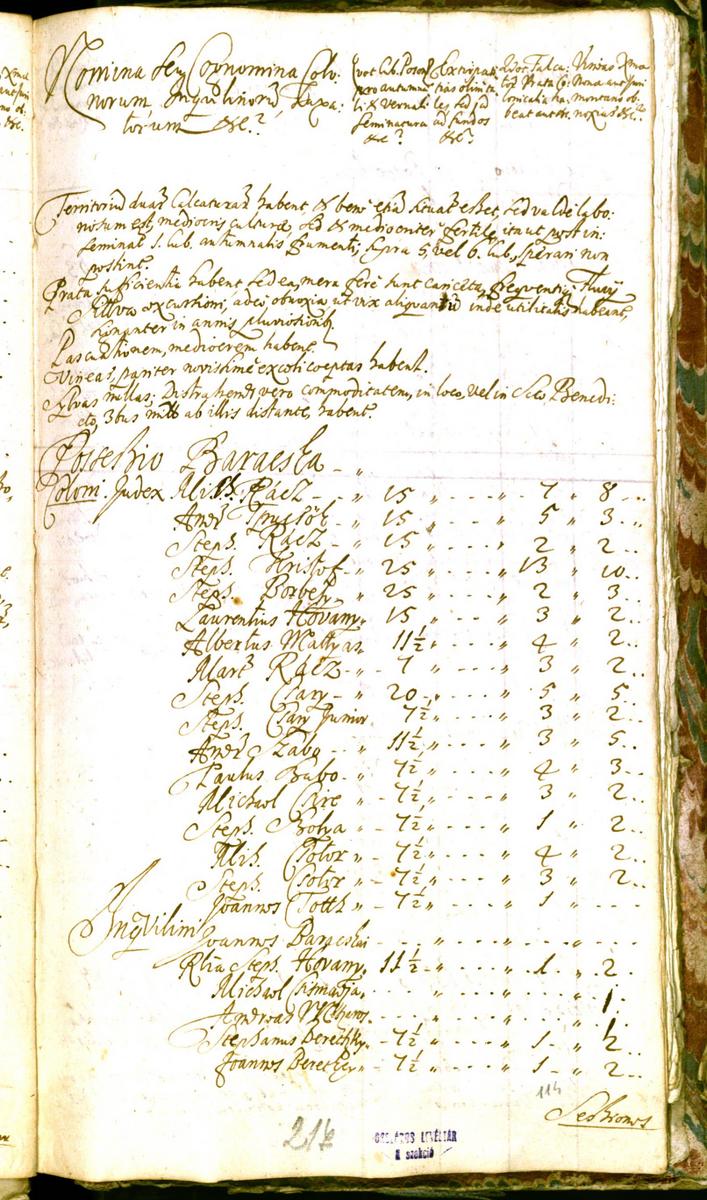 Nomina seu Cognomina Colo:
norum, Inquilinorũ, Taxa:
torum &c?
Quot Cub. Poson
pro autumna
li & Vernali
Seminatura
&c?
Extirpati
tias
les sed
ad fundos
&c?
Quot Falca:
toz Prata
habeat aut &c.
Vineas
Nona aut Juri
montano ob:
noxias &c.
Territoriũ duaz Calcaturaz habent, & bene etiã situat esset, sed valde labo:
riosum est, mediocris culturæ, sed & mediocriter fertile ita ut post in:
seminat 1. Cub. autumnalis frumenti, supra 5, vel 6. Cub. sperari non
possint.
Prata sufficientia habent sed ea, mera fere sunt cariceta, frequenti Fluvij
excursioni, adeo obnoxia ut vix aliquantũ inde utilitatis habeant,
in annis pluviosis.
Pascuationem, mediocrem habent.
Vineas, pariter novissime excoli coeptas habent.
Sylvas nullas: Distrahendi vero commoditatem, in loco, vel in Scto Benedi:
cto, 3bus mill ab illis distante, habent.
Possessio Baracska
Coloni. Judex Mich. Racz - 15 - 7 - 8
Andr. - 15 - 5 - 3
Steph. Racz - 15 - 2 - 2
Steph. Kristof - 25 - 13 - 10
Steph. Borbely - 25 - 2 - 3
Laurentius Hovany - 15 - 3 - 2
Albertus Mattyas - 11½ - 4 - 2
Mart. Racz - 7 - 3 - 2
Steph. Csary - 20 - 5 - 5
Steph. Csary Junior - 7½ - 3 - 2
Andr. Szabo - 11½ - 3 - 5
Paulus Babo - 7½ - 4 - 3
Michael Cire - 7½ - 3 - 2
Steph. Bolya - 7½ - 1 - 2
Mich. Csotor - 7½ - 4 - 2
Steph. Csotor - 7½ - 3 - 2
Joannes Totth - 7½ - 1
Inqvilini Joannes Baracskai
Rlia Steph. Hovany - 11½ - 1 - 2
Michael Csismadja
Andreas - 1
Stephanus Berethky - 7½ - 1 - ½
Joannes Berethky - 7½ - 1 - 2
114
Sessiones
216
ORSZÁGOS LEVÉLTÁR
A szekció